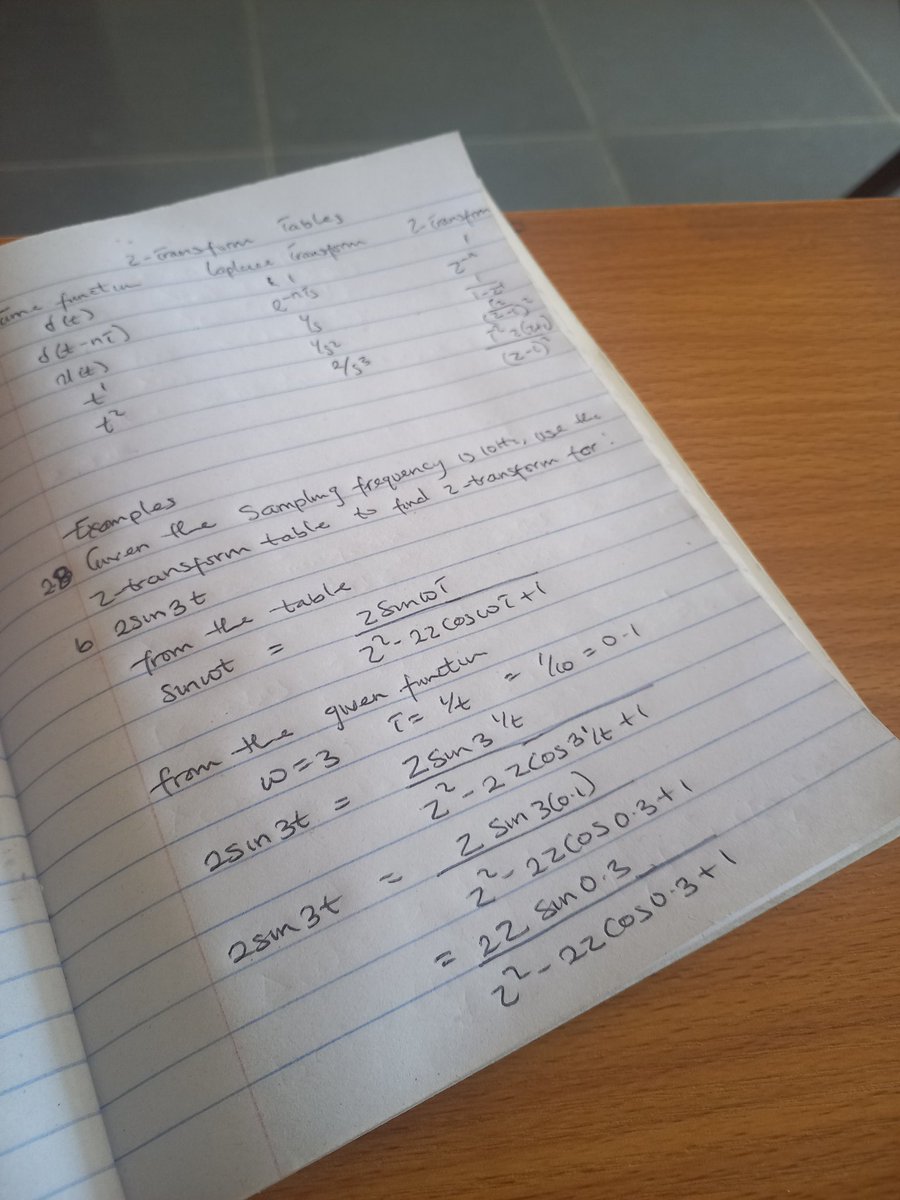 Z-Transform Tables
Time function Laplace Transform Z-Transform
δ(t) 1 1
δ(t-nT) e^-nTs z^-n
u(t) 1/s
t^1 1/s^2
t^2 2/s^3
Examples
28 Given the Sampling frequency is 10Hz, use the
Z-transform table to find Z-transform for:
b 2sin3t
from the table
sinωt = ZsinωT / Z^2 - 2ZcosωT + 1
from the given function
ω = 3 T = 1/t = 1/10 = 0.1
2sin3t = Zsin3 1/t / Z^2 - 2Zcos3 1/t + 1
2sin3t = Z sin3(0.1) / Z^2 - 2Zcos0.3 + 1
= 2Z sin0.3 / Z^2 - 2Zcos0.3 + 1